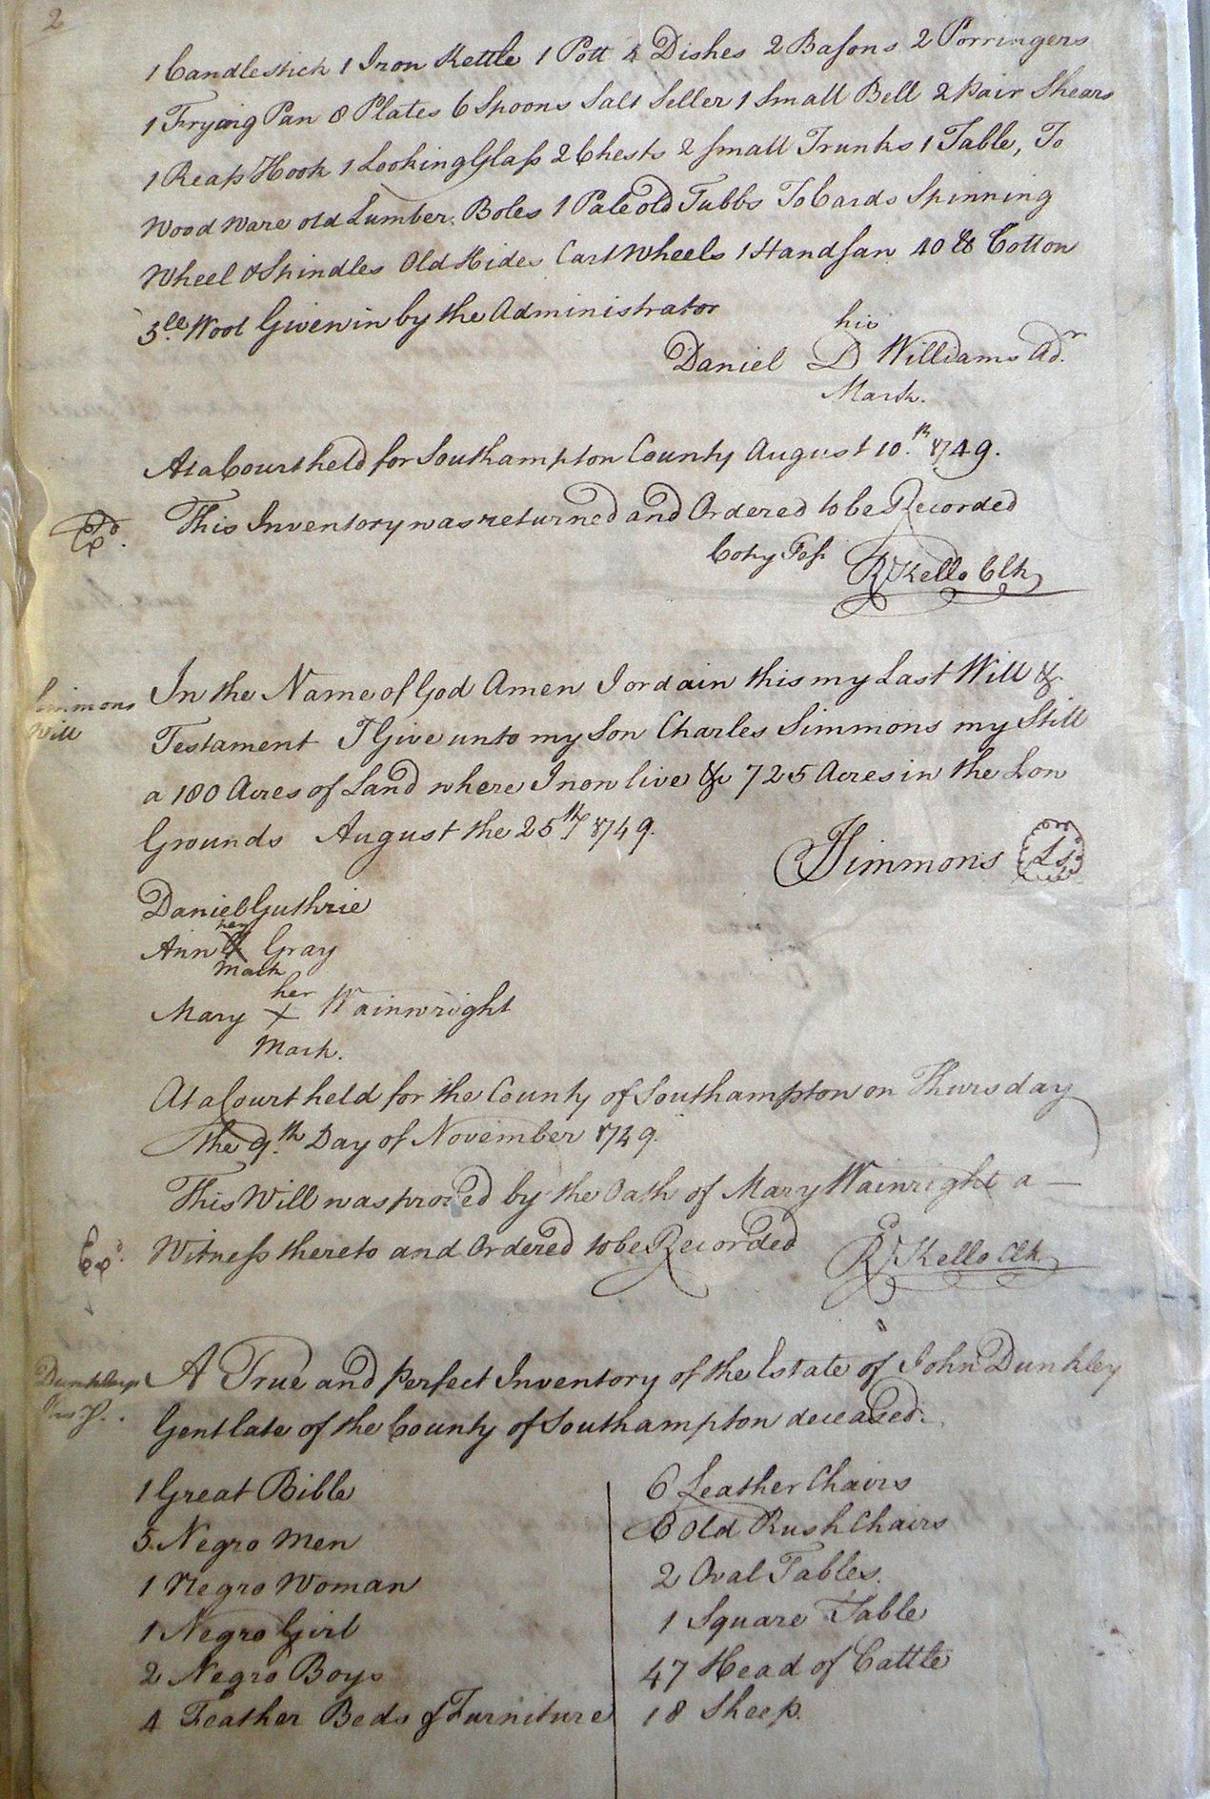 2
1 Candlestick 1 Iron Kettle 1 Pott 4 Dishes 2 Basons 2 Porringers
1 Frying Pan 8 Plates 6 Spoons Salt Seller 1 Small Bell 2 pair Shears
1 Reap Hook 1 Looking Glass 2 Chests 2 small Trunks 1 Table, To
Wood ware old Lumber Boles 1 Pale old Tubbs To Cards Spinning
Wheel & Spindles Old Hides Cart Wheels 1 Handsaw 40 ll Cotton
5 ll. Wool Given in by the Administrator
his
Daniel D Williams Adr.
Mark.
At a Court held for Southampton County August 10.th 1749.
This Inventory was returned and Ordered to be Recorded
Copy Test
R Kello Clk
Simmons
Will
In the Name of God Amen I ordain this my Last Will &
Testament I Give unto my Son Charles Simmons my Still
a 180 Acres of Land where I now live & 725 Acres in the Low
Grounds August the 25th 1749.
Simmons Ls
Daniel Guthrie
her
Ann Gray
Mark
her
Mary X Wainwright
Mark.
At a Court held for the County of Southampton on Thursday
the 9.th Day of November 1749.
This Will was proved by the Oath of Mary Wainright a —
Witness thereto and Ordered to be Recorded
R Kello Clk.
Dunkleys
A True and perfect Inventory of the Estate of John Dunkley
Gent late of the County of Southampton deceased.
1 Great Bible
5 Negro Men
1 Negro Woman
1 Negro Girl
2 Negro Boys
4 Feather Beds & Furniture
6 Leather Chairs
6 Old Rush Chairs
2 Oval Tables.
1 Square Table
47 Head of Cattle
18 Sheep.